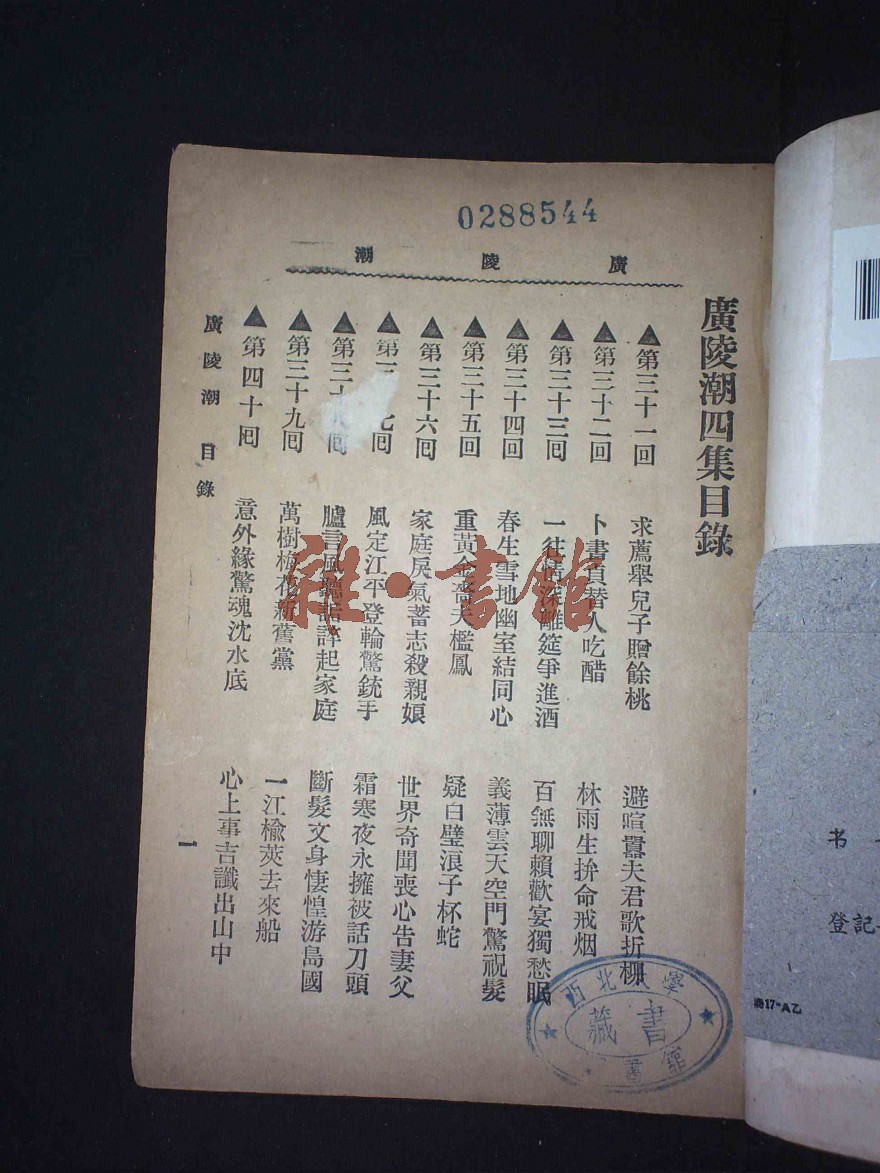 0288544
廣陵潮
廣陵潮四集目錄
▲第三十一回 求薦舉兒子贈餘桃 避喧囂夫君歌折柳
▲第三十二回 卜書貞替人吃醋 林雨生拚命戒烟
▲第三十三回 一往情深離筵爭進酒 百無聊賴歡宴獨愁眠
▲第三十四回 春生雪地幽室結同心 義薄雲天空門驚祝髮
▲第三十五回 重黃金嗇夫檻鳳 疑白璧浪子杯蛇
▲第三十六回 家庭戾氣蓄志殺親娘 世界奇聞喪心告妻父
▲第三 七回 風定江平登輪驚銃手 霜寒夜永擁被話刀頭
▲第三十八回 臚言風聽詬誶起家庭 斷髮文身悽惶游島國
▲第三十九回 萬樹梅花新舊黨 一江楡莢去來船
▲第四十回 意外緣驚魂沈水底 心上事吉讖出山中
廣陵潮 目錄
一
雜·書館
西北大學
藏書
圖書館
书
登記
乙